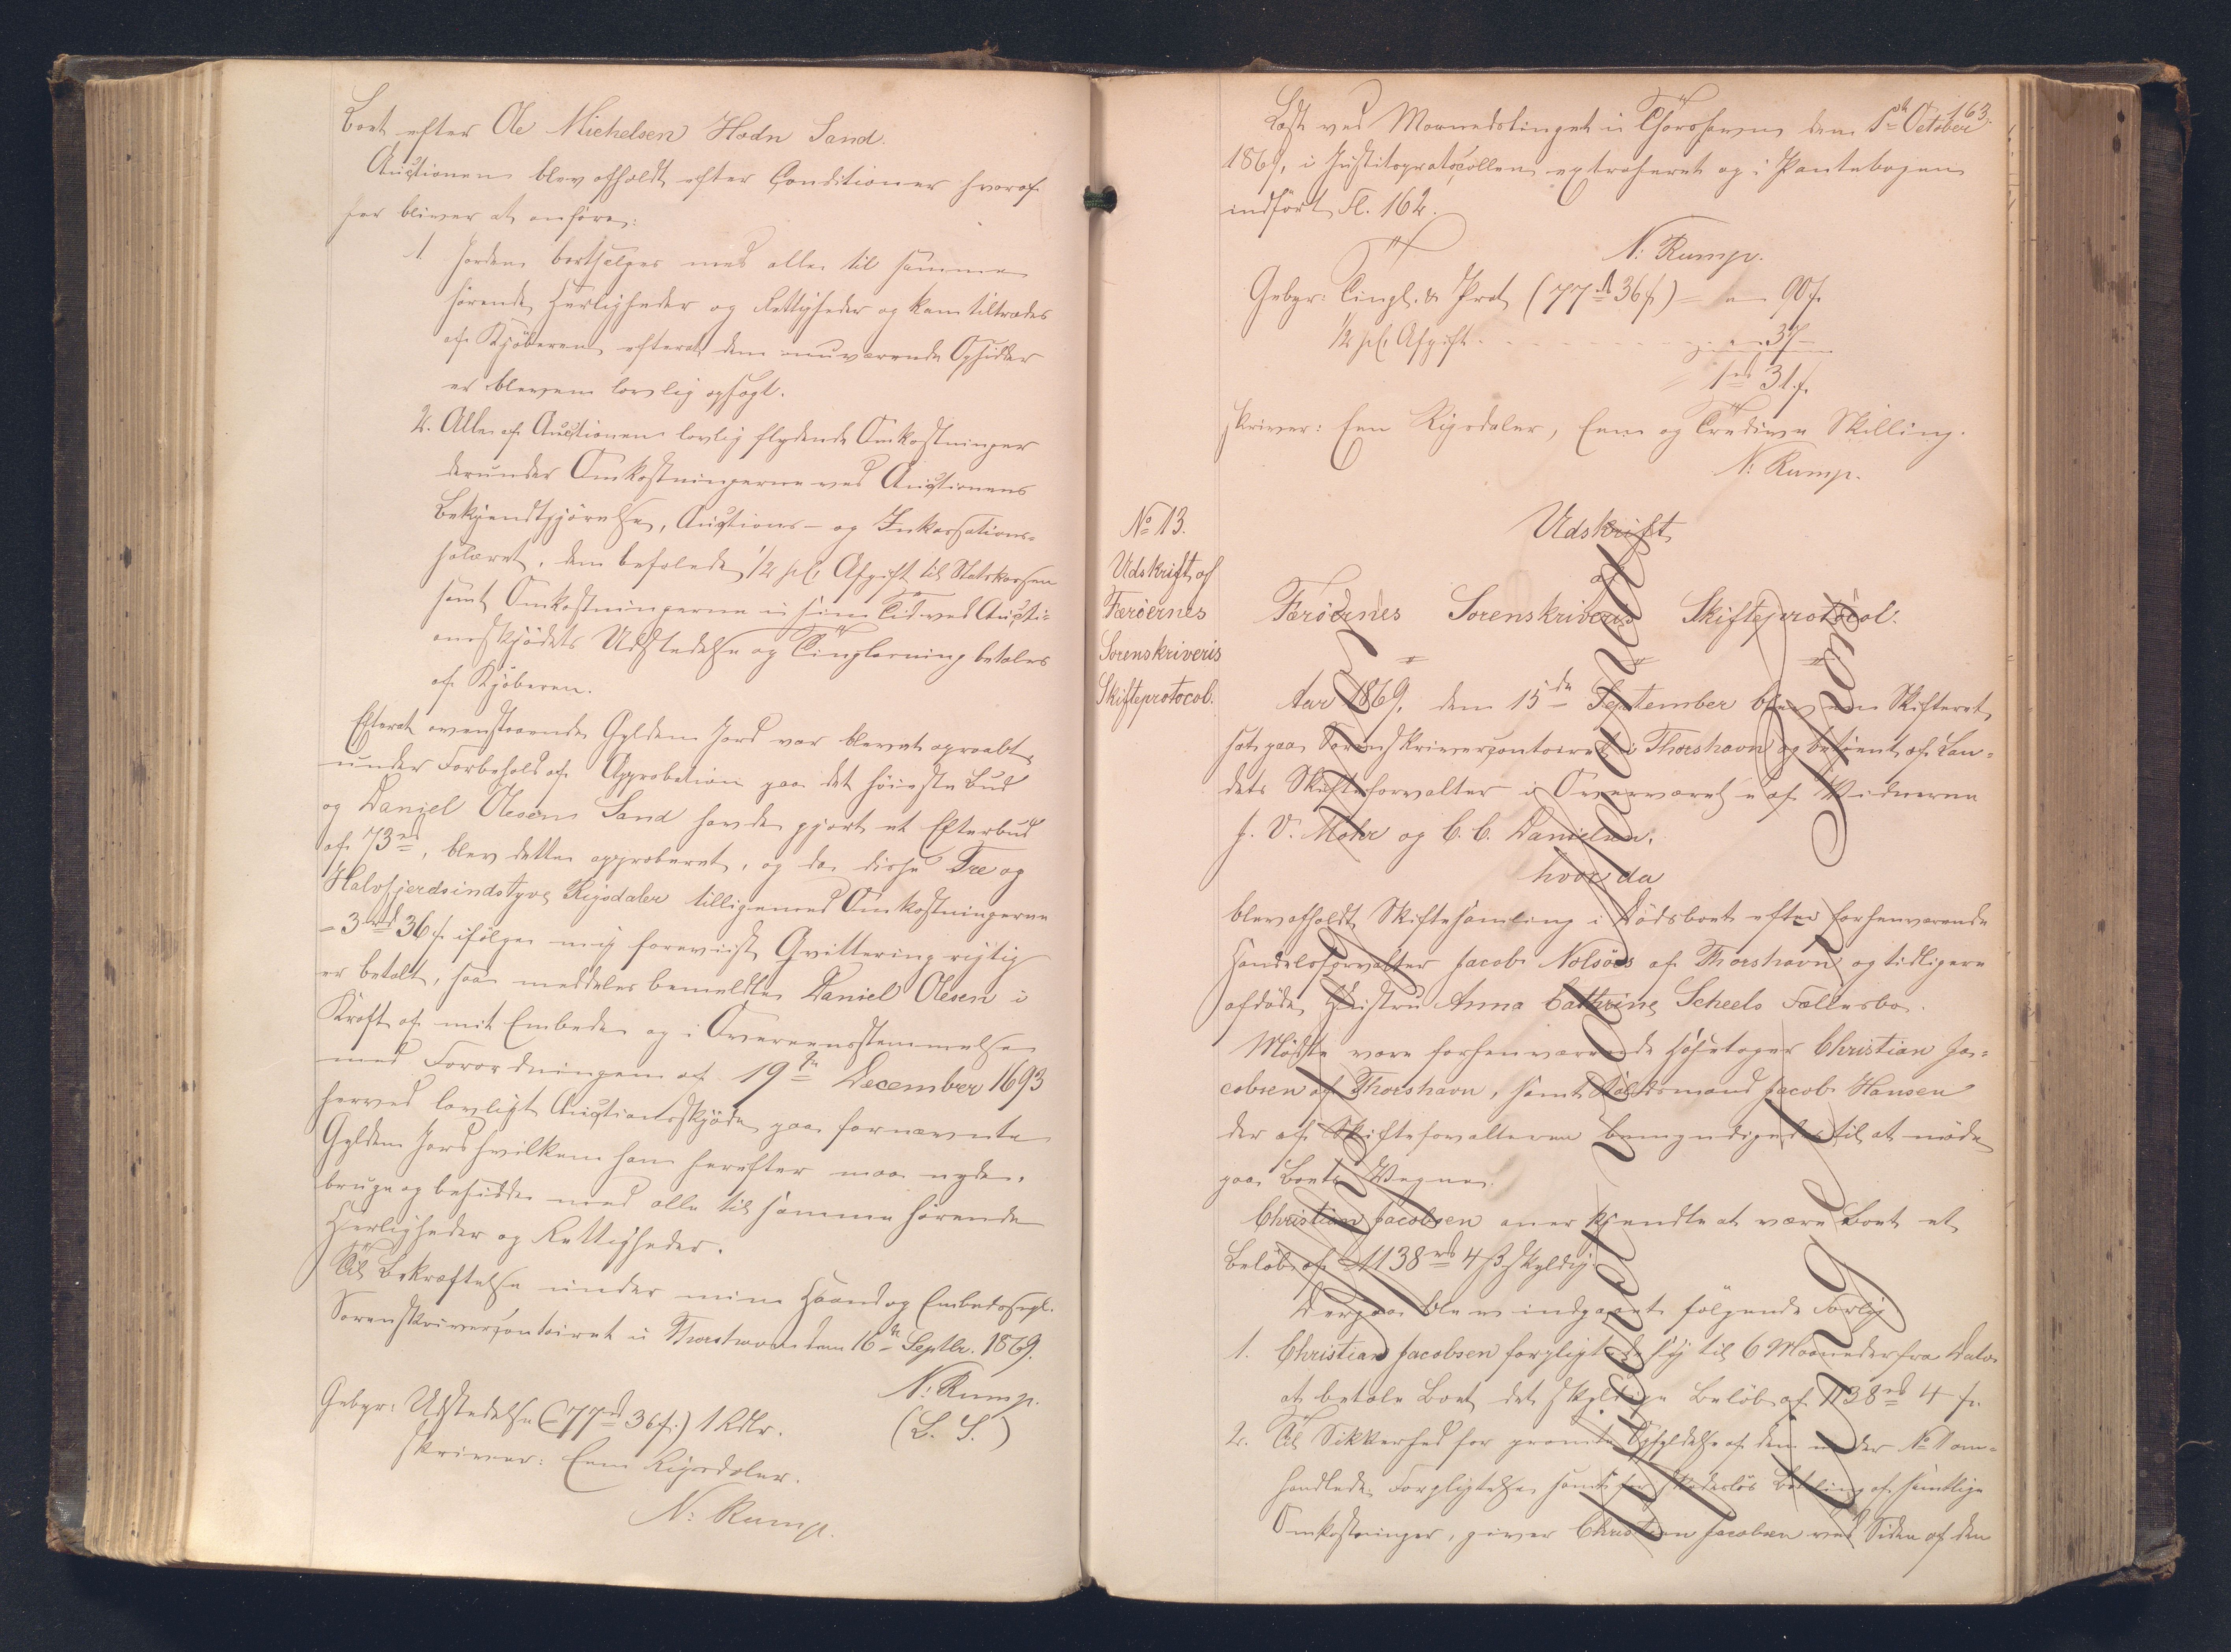 Boet efter Ole Michelsen Hødn Sand.
Auctionen blev afholdt efter Conditioner hvoraf
her bliver at anføre:
1 Jorden bortsælges med alle til samme
hørende Herligheder og Rettigheder og kan tiltrædes
af Kjöberen efterat den nuværende Opsidder
er bleven lovlig opsagt.
2. Alle af Auctionen lovlig flydende Omkostninger
derunder Omkostningerne ved Auctionens
Bekjendtgjörelse, Auctions- og Inkassations-
salæret, den befalede 1/2 pCt. Afgift til Statskassen
samt Omkostningerne i sin Tid ved Aucti-
onsskjödets Udstedelse og Tinglæsning betales
af Kjöberen.
Efterat ovenstaaende Gylden Jord var blevet opraabt
under Forbehold af Approbation paa det höieste Bud
og Daniel Olesen Sand havde gjort et Efterbud
af 73 rd, blev dette approberet, og da disse Tre og
Halvfjerdsindstyve Rigsdaler tilligemed Omkostningerne
- 3 rd 36 s. ifölge mig foreviist Qvittering rigtig
er betalt, saa meddeles bemeldte Daniel Olesen i
Kraft af mit Embede og i Overeensstemmelse
med Forordningen af 19de December 1693
herved lovligt Auctionsskjöde paa fornævnte
Gylden Jord hvilken han herefter maa nyde,
bruge og besidde med alle til samme hörende
Herligheder og Rettigheder.
Til Bekræftelse under min Haand og Embedssegl.
Sorenskrivercontoiret i Thorshavn den 16de Septbr. 1869.
N: Rump.
(L. S.)
Gebyr: Udstedelse (77 rd 36 s.) 1 Rdlr.
skriver: Een Rigsdaler.
N: Rump.
163.
Læst ved Maanedstinget i Thorshavn den 5te October
1869, i Justitsprotocollen extraheret og i Pantebogen
indfört Fl. 162.
N: Rump.
Gebyr: Tingl. & Prot (77 rd 36 s) = " - 90 s.
1/2 pCt. Afgift - - - - - - - " - 37 -
1 rd 31 s.
skriver: Een Rigsdaler, Een og Tredive Skilling.
N: Rump.
No 13.
Udskrift af
Færöernes
Sorenskriveris
Skifteprotocol.
Udskrift
af
Færöernes Sorenskriveris Skifteprotocol.
Aar 1869, den 15de September blev en Skifteret
sat paa Sorenskrivercontoiret i Thorshavn og betjent af Lan-
dets Skifteforvalter i Overværelse af Vidnerne
J. V. Mohr og C. C. Danielsen,
hvor da
blev afholdt Skiftesamling i Dödsboet efter forhenværende
Handelsforvalter Jacob Nolsöes af Thorshavn og tidligere
afdöde Hustru Anna Cathrine Scheels Fællesbo.
Mödte vare forhenværende Christian Ja-
cobsen af Thorshavn, samt Jacob Hansen
der af Skifteforvalteren bemyndigedes til at möde
paa Boets Vegne.
Christian Jacobsen anerkjendte at være Boet et
Belöb af 1138 rd 4 ß skyldig.
Derpaa blev indgaaet fölgende Forlig
1. Christian Jacobsen forpligtede sig til 6 Maaneder fra Dato
at betale Boet det skyldige Belöb af 1138 rd 4 s.
2. Til Sikkerhed for promte Opfyldelse af den under No 1 om-
handlede Forpligtelse samt for skadeslös Betaling af samtlige
Omkostninger, giver Christian Jacobsen ved Siden af den